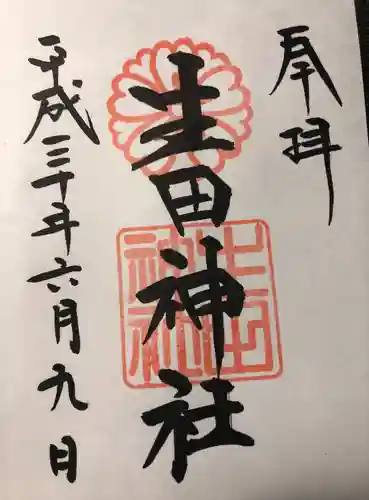 奉拝
生田神社
平成三十年六月九日
生田神社